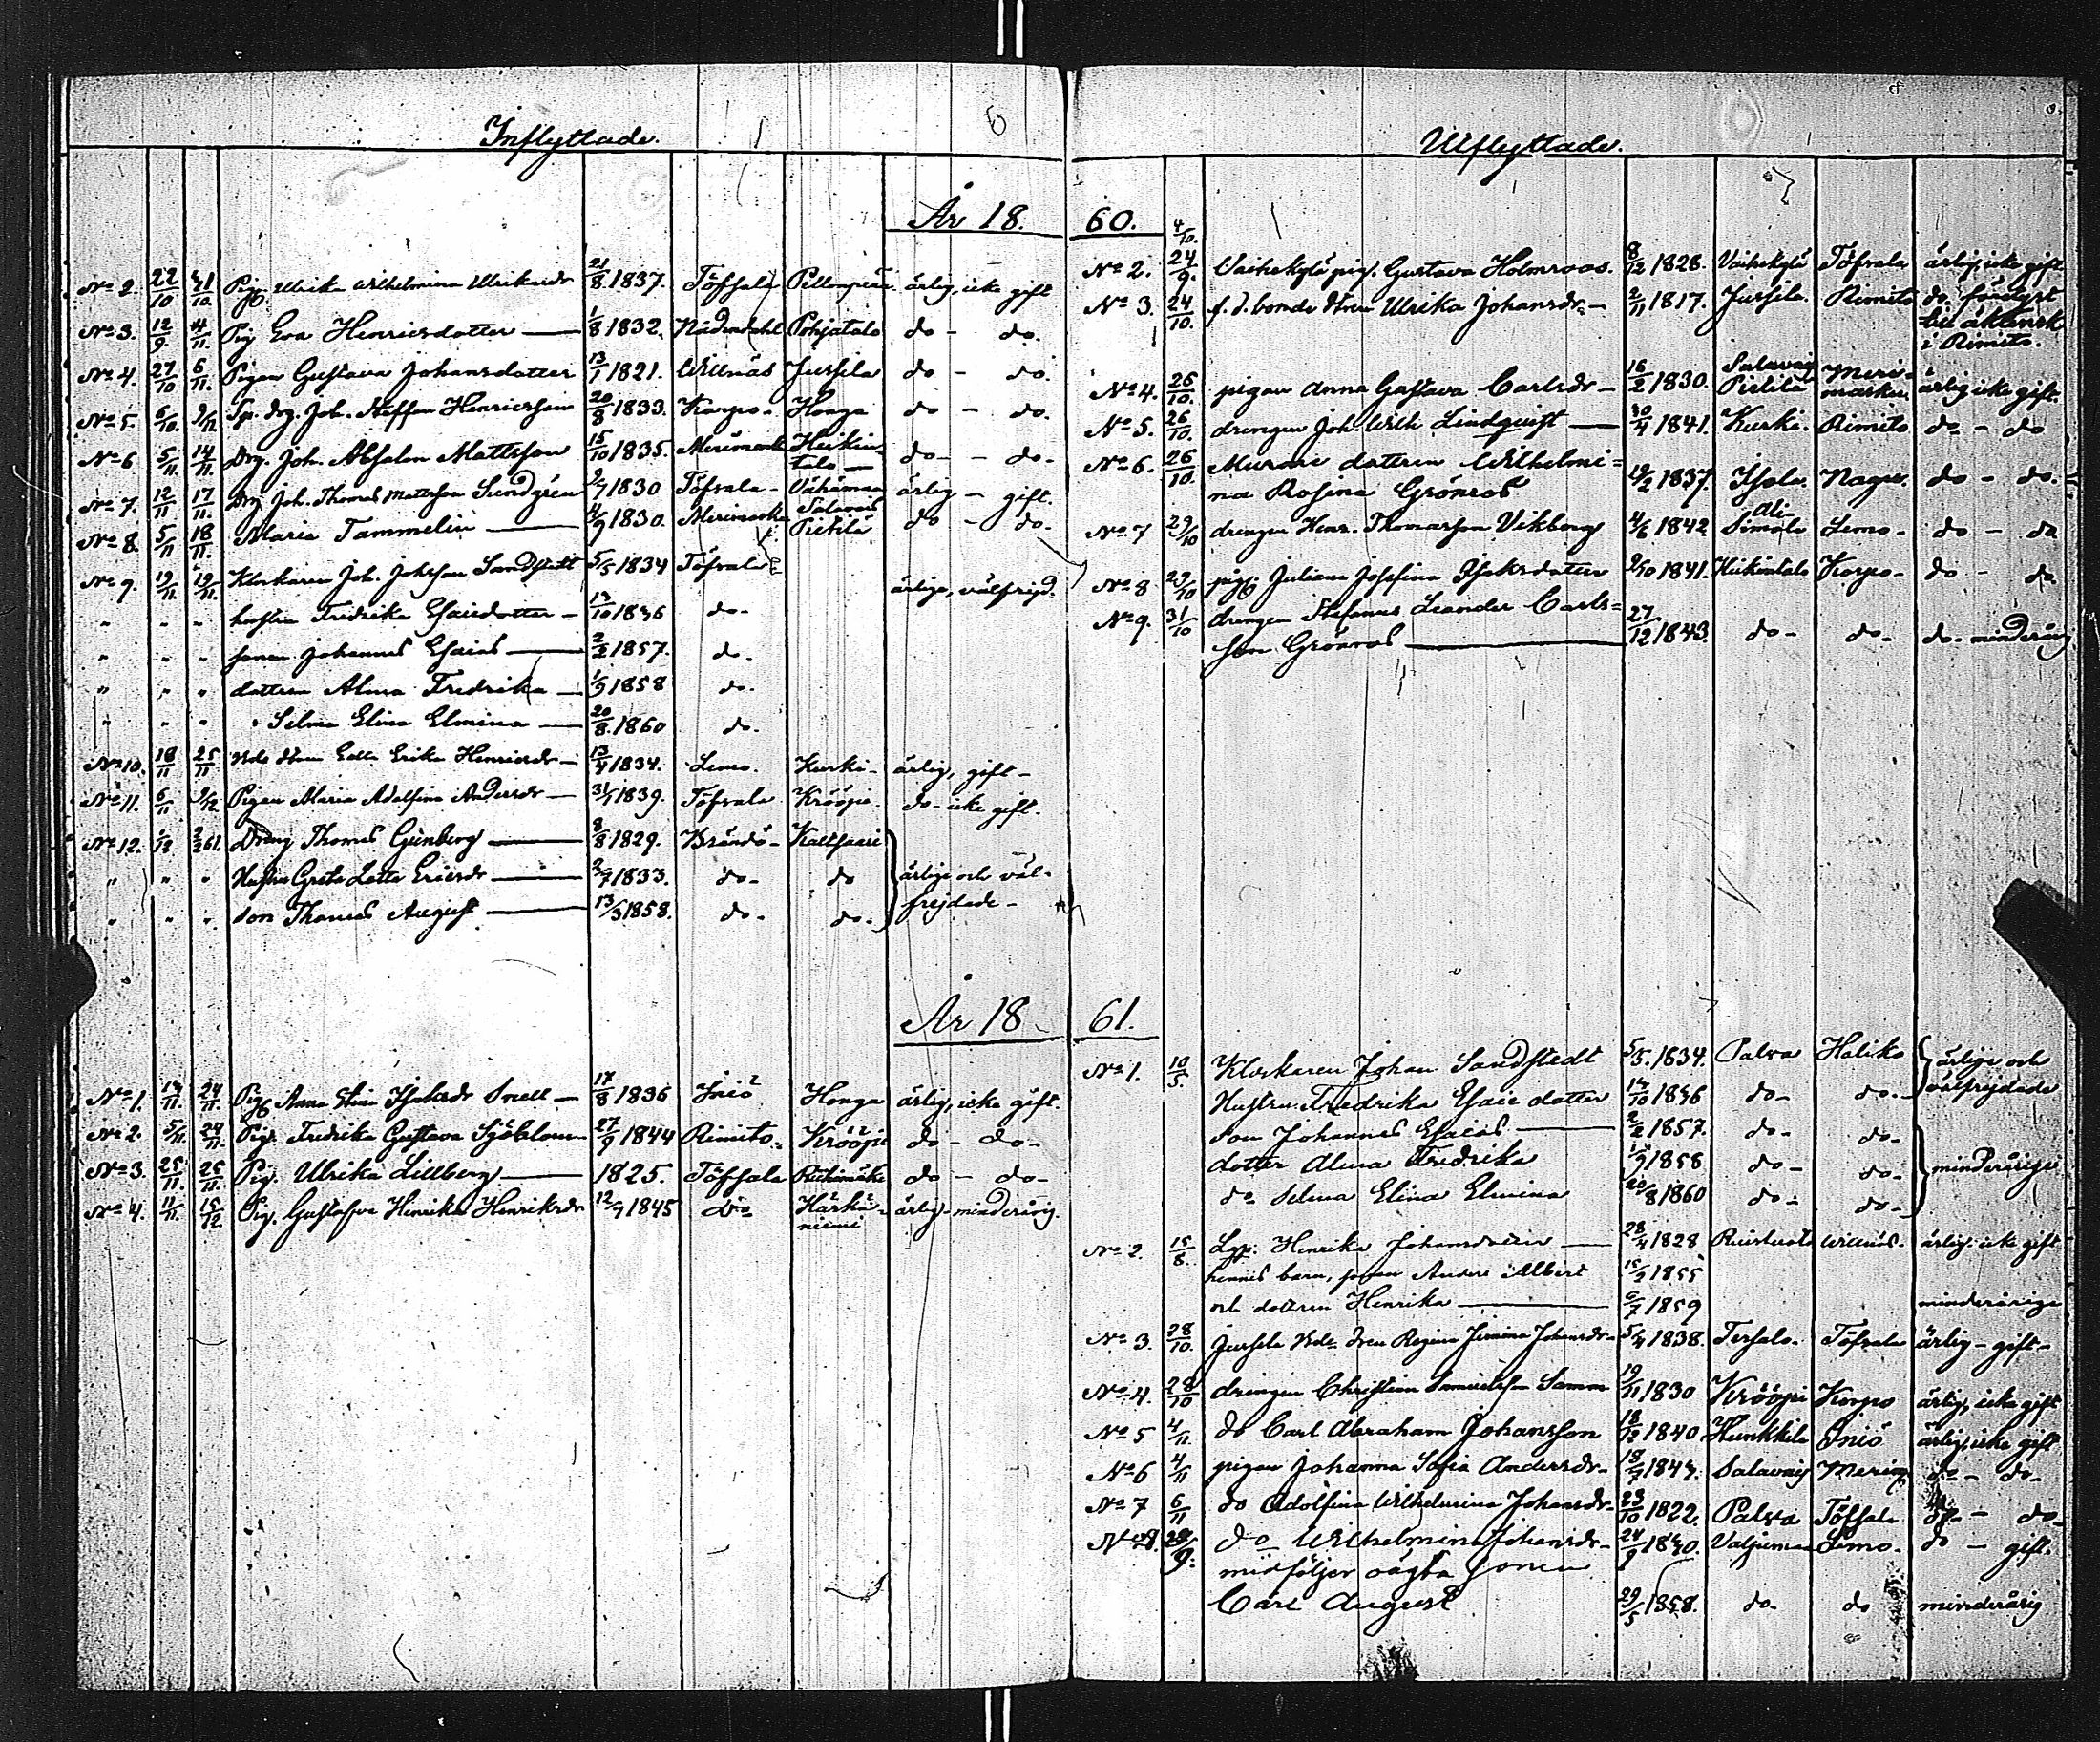 6
Inflyttade.
År 18
No 2. 22/10 31/10. Pig. Ulrika Wilhelmina Ulriksdr 21/8 1837. Töfsala ärlig, icke gift
No 3. 12/9. 4/11. Pig Eva Henricsdotter — 1/8 1832. Nådendahl Pohjatalo do - do.
No 4. 27/10 6/11. Pigan Gustava Johansdotter 13/1 1821. Willnäs Jursila do - do.
No 5. 6/10. 9/12 Sp. drg. Joh. Steffan Henricsson 20/8 1833. Korpo - Honga do - do.
No 6 5/11. 14/11. Drg. Joh. Absalon Mattsson 15/10 1835. Merimasku Heikin-
talo — do - do-
No 7. 12/11 17/11. Drg Joh. Thomas Mattsson Sundgrén 2/7 1830 Töfsala - Vähämaa ärlig - gift.
No 8. 5/11 18/11. Maria Tammelin — 4/9 1830. Merimasku Salavais
Pietilä do - do-
No 9. 19/11. 19/11. Klockaren Joh. Johsson Sandstedt 5/5 1834 Töfsala ärliga, välfrejd.
" " " hustru Fredrika Esaiedotter - 14/10 1836 do-
" " " sonen Johannes Esaias — 2/2 1857. do.
" " " dottren Alma Fredrika — 1/9 1858 do.
" " " " Selma Elina Elmina — 20/8 1860 do.
No 10. 18/11 25/11. Erika Henricsdr - 13/4 1834. Lemo. Kurki - ärlig, gift -
No 11. 6/11 9/12 Pigan Maria Adolfina Andersdr — 31/1 1839. Töfsala Kröópi. do- icke gift.
No 12. 1/12 2/2 61. Dräng Thomas Grönberg — 8/8 1829. Brändö - Kaitsaari
" " " Hustru Greta Lotta Ericsdr — 2/7 1833. do- do ärliga och väl-
" " " son Thomas August — 13/3 1858. do- do- frejdade -
År 18
No 1. 14/11. 24/11. Pig. Anna Stina Isaksdr Snell — 17/8 1836 Iniö Honga ärlig, icke gift.
No 2. 5/11. 24/11. Pig. Fredrika Gustava Sjöblom 27/9 1844 Rimito. Kröópi do - do -
No 3. 25/11. 25/11. Pig. Ulrika Lillberg — 1825. Töfsala do - do -
No 4. 11/11. 15/12 Pig. Gustafva Henrika Henriksdr 12/7 1845 do Härkä-
niemi ärlig - minderårig.
Utflyttade.
60.
4/10.
No 2. 24/9. Vaihekylä pig. Gustava Holmroos. 8/12 1828. Vaihekylä Töfsala ärlig, icke gift
No 3. 24/10. f.d. bonde Ulrika Johansdr - 2/11 1817. Jursila. Rimito do. förlyst
till äktensk
i Rimito.
No 4. 26/10. pigan Anna Gustava Carlsdr - 16/2 1830. Salavais
Pietilä Meri-
masku. ärlig icke gift.
No 5. 26/10. drengen Joh. Wilh. Lindquist — 30/4 1841. Kurki. Rimito do - do
No 6. 26/10 Murare dottren Wilhelmi-
na Rosina Grönros 19/2 1837. Isola. Nagu. do - do.
No 7 29/10 drengen Henr. Thomasson Vikberg 4/6 1842 Ali-
Simola Lemo - do - do
No 8 29/10 pig. Juliana Josefina Isaksdotter 9/10 1841. Heikintalo Korpo - do - do
No 9. 31/10 drengen Stefanus Leander Carls-
son Grönros — 27/12 1843. do- do- do- minderårig
61.
No 1. 10/5. Klockaren Johan Sandstedt 5/5. 1834. Palva Haliko ärliga och
Hustru Fredrika Esaie dotter 14/10 1836 do- do.- välfrejdade
son Johannes Esaias — 2/2 1857. do- do-
dotter Alma Fredrika 1/9 1858 do- do- minderåriga
do Selma Elina Elmina 20/8 1860 do- do-
No 2. 15/8. Henrika Johansdotter — 28/4 1828 Willnäs. ärlig. icke gift
hennes barn, sonen Anders Albert 15/2 1855
och dottren Henrika — 6/7 1859 minderåriga
No 3. 28/10. Jursila Regina Johansdr - 5/4 1838. Tersalo. Töfsala ärlig - gift -
No 4. 28/10 drengen Christian Samuelsson Samm 19/11 1830 Kröópi Korpo ärlig, icke gift
No 5 4/11. do Carl Abraham Johansson 18/12 1840. Hunkkila Iniö ärlig, icke gift
No 6 4/11 pigan Johanna Sofia Andersdr - 18/7 1843. Salavais Merim do - do-
No 7 6/11 do Adolfina Wilhelmina Johansdr - 23/10 1822. Palva Töfsala do - do-
No 8. 28/9. do Wilhelmina Johansdr - 24/9 1830. Lemo. do - gift.
medföljer oägta sonen
Carl August 29/5 1858. do- do minderårig